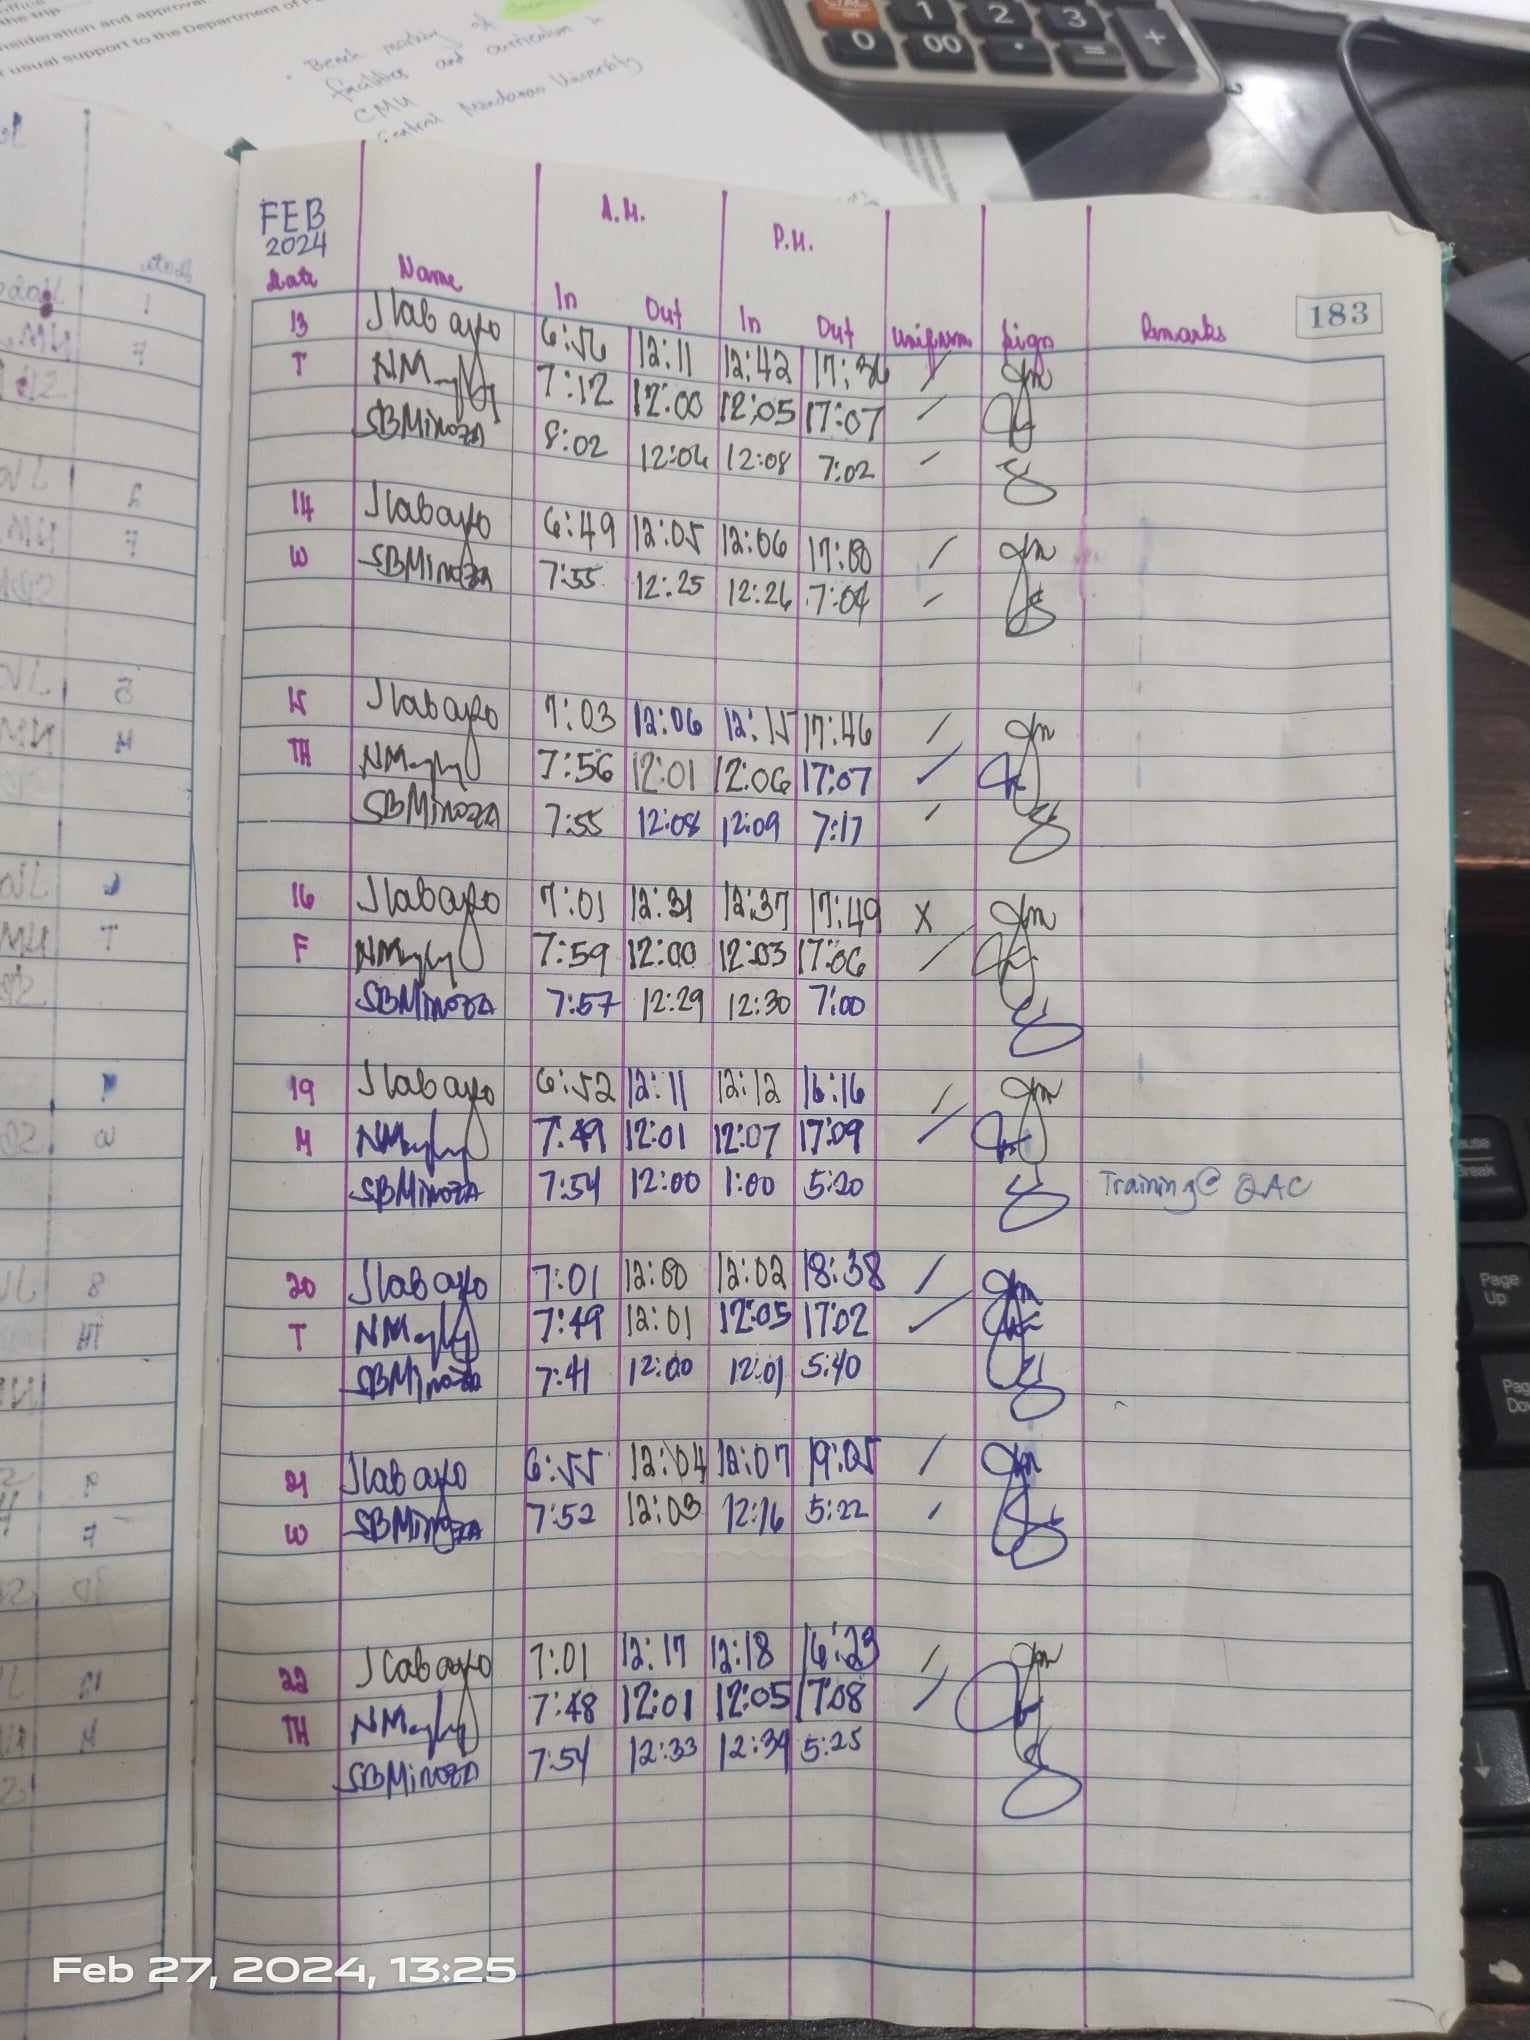 office
the trip
nsideration and approval
usual support to the Department of
Bench marking of
facilities and curriculum
CMU
Central Mindanao University
1 2 3 +
0 00 . =
FEB
2024
A.M. P.M.
183
Date Name In Out In Out Uniform Sign Remarks
13 Jlabayo 6:56 12:11 12:42 17:36 /
T 7:12 12:00 12:05 17:07 /
SBMinoza 8:02 12:06 12:08 7:02 /
14 Jlabayo 6:49 12:05 12:06 17:00 /
W SBMinoza 7:55 12:25 12:26 7:04 /
15 Jlabayo 7:03 12:06 12:15 17:46 /
TH 7:56 12:01 12:06 17:07 /
SBMinoza 7:55 12:08 12:09 7:17 /
16 Jlabayo 7:01 12:31 12:37 17:49 X
F 7:59 12:00 12:03 17:06 /
SBMinoza 7:57 12:29 12:30 7:00
19 Jlabayo 6:52 12:11 12:12 16:16 /
M 7:49 12:01 12:07 17:09 /
SBMinoza 7:54 12:00 1:00 5:20 Training @ QAC
20 Jlabayo 7:01 12:00 12:02 18:38 /
T 7:49 12:01 12:05 17:02 /
SBMinoza 7:41 12:00 12:01 5:40
21 Jlabayo 6:55 12:04 12:07 19:05 /
W SBMinoza 7:52 12:03 12:16 5:22 /
22 Jlabayo 7:01 12:17 12:18 16:23 /
TH 7:48 12:01 12:05 17:08 /
SBMinoza 7:54 12:33 12:34 5:25
Break
Page
Up
Feb 27, 2024, 13:25